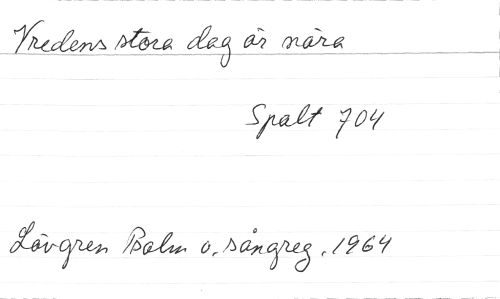 Vredens stora dag är nära
Spalt 704
Lövgren Psalm o. sångreg. 1964